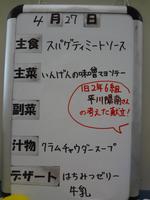 4月27日
主食 スパゲティミートソース
主菜 いんげんの味噌マヨソテー
副菜
旧2年6組
平川陽南さん
の考えた献立!
汁物 クラムチャウダースープ
デザート はちみつゼリー
牛乳